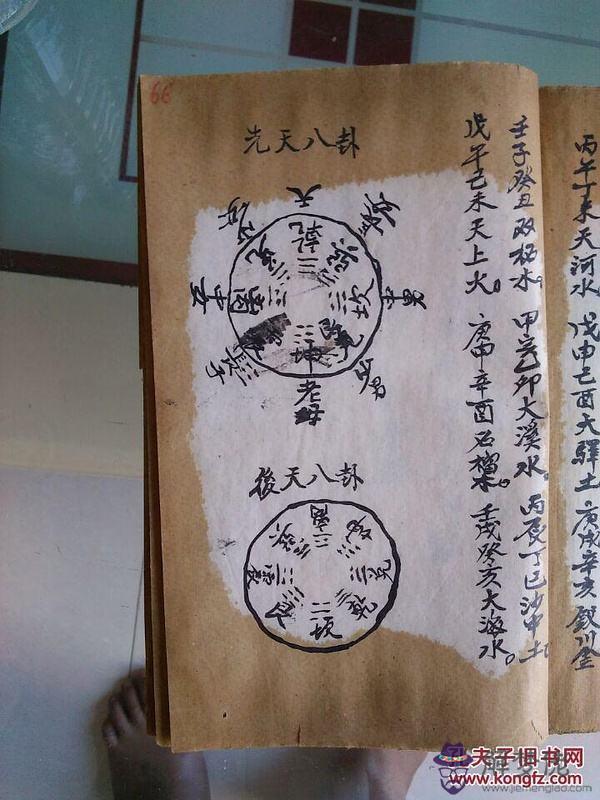 66
丙午丁未天河水。戊申己酉大驛土。庚戌辛亥
壬子癸丑双柘木。甲寅乙卯大溪水。丙辰丁巳沙中土。
戊午己未天上火。庚申辛酉石榴木。壬戌癸亥大海水。
先天八卦
天
乾
兑
巽
中女
坎
中男
坤
老母
長子
少男
後天八卦
巽
坤
兑
乾
坎
夫子旧书网
www.kongfz.com
www.jiemengliao.com